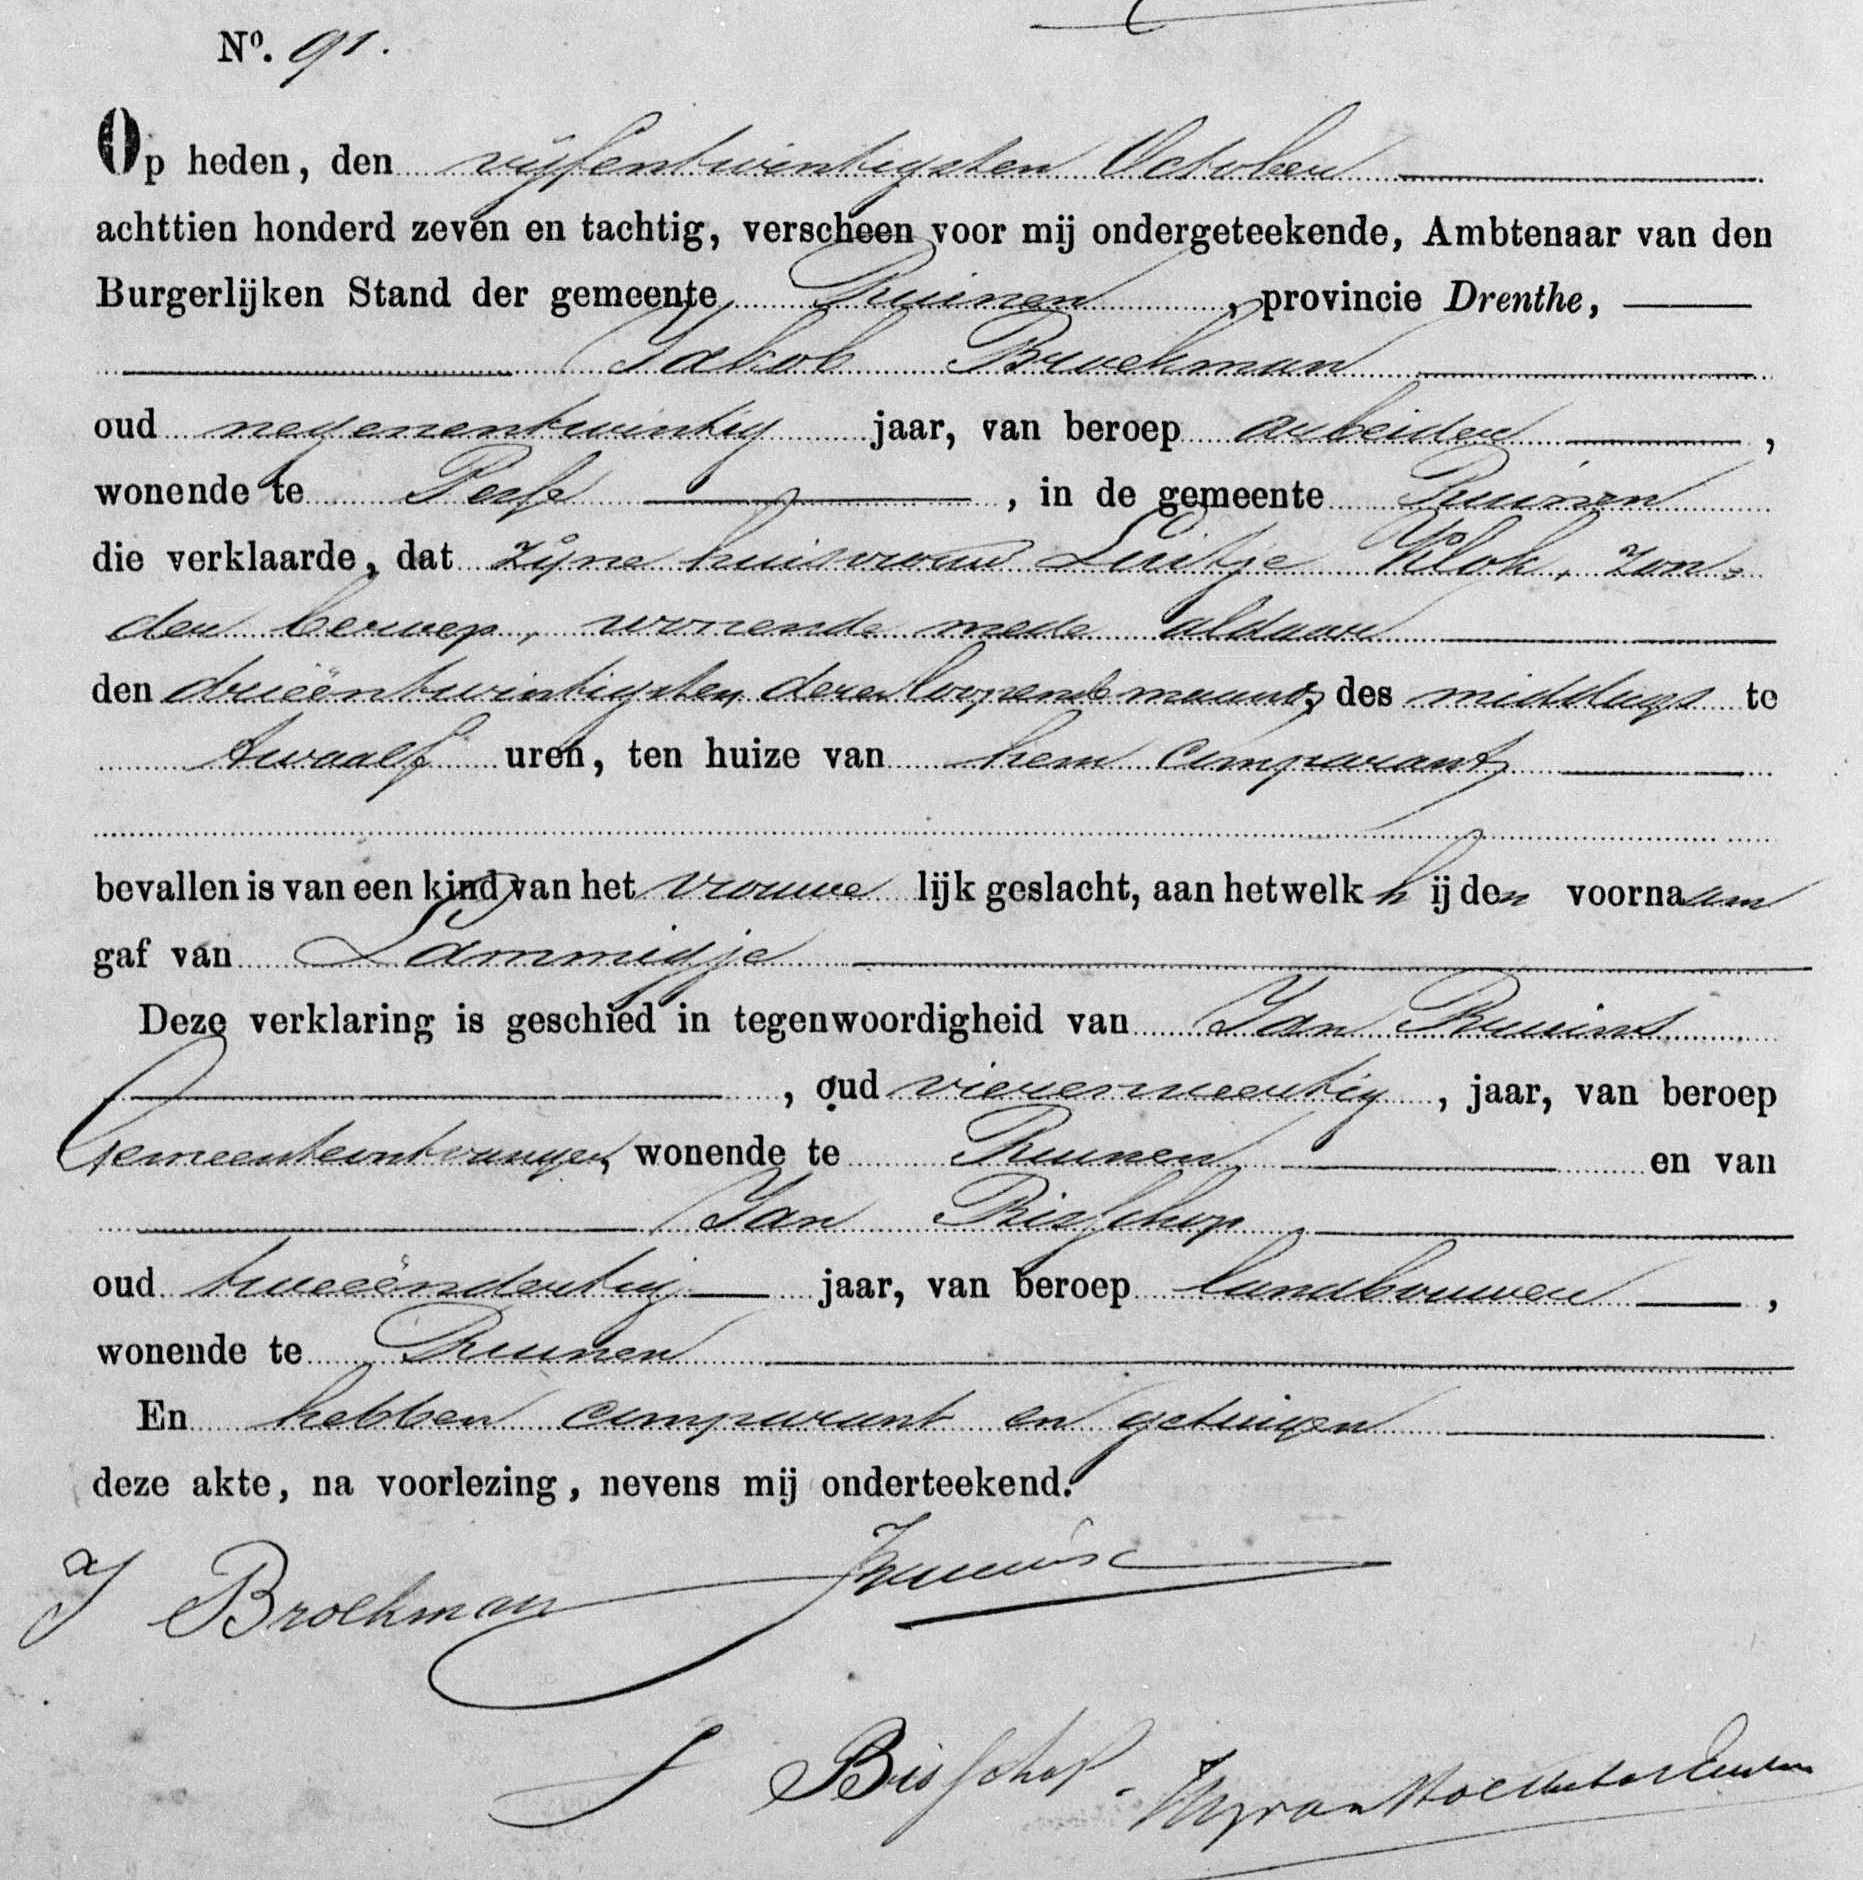 Nº. 91.
Op heden, den vijfentwintigsten October
achttien honderd zeven en tachtig, verscheen voor mij ondergeteekende, Ambtenaar van den
Burgerlijken Stand der gemeente Ruinen, provincie Drenthe,
Jakob Broekman
oud negenentwintig jaar, van beroep arbeider,
wonende te Pesse, in de gemeente Ruinen
die verklaarde, dat zijne huisvrouw Luitje Klok, zon-
der beroep, wonende mede aldaar
den drieëntwintigsten dezer loopende maand, des middags te
twaalf uren, ten huize van hem comparant
bevallen is van een kind van het vrouwelijk geslacht, aan hetwelk hij den voornaam
gaf van Lammigje
Deze verklaring is geschied in tegenwoordigheid van Jan Ruiins
, oud vierenveertig, jaar, van beroep
Gemeenteontvanger, wonende te Ruinen en van
Jan Bisschop
oud tweeëndertig jaar, van beroep landbouwer,
wonende te Ruinen
En hebben comparant en getuigen
deze akte, na voorlezing, nevens mij onderteekend.
J Broekman
J Bisschop